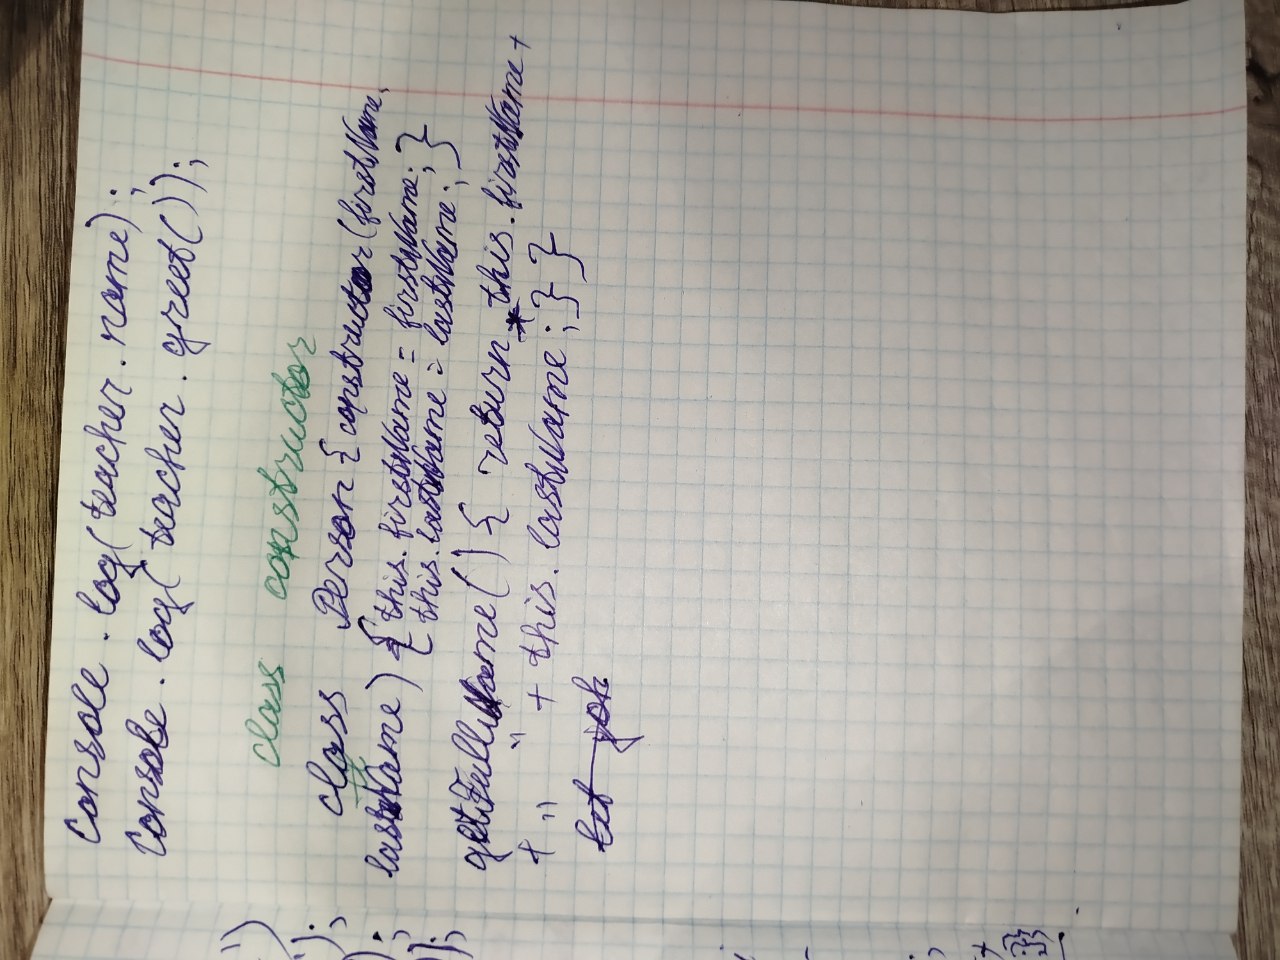 console.log(teacher.name);
console.log(teacher.greet());
class constructor
class Person { constructor(firstName,
lastName) { this.firstName = firstName;
this.lastName = lastName; }
getFullName() { return this.firstName +
+ " " + this.lastName; } }
let joh